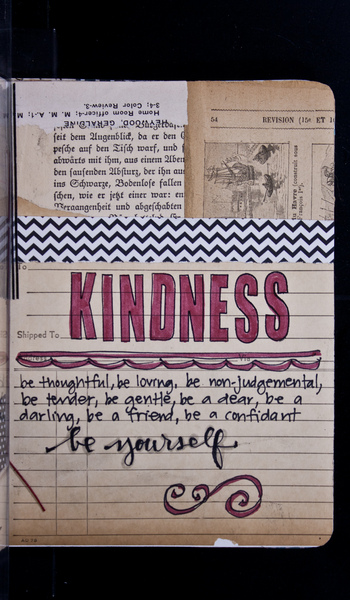 3-4; Color Review-3.
Home Room officer-4; M. M. A.-1; M
HEYWOOD, GERALDINE
seit dem Augenblick, da er den
pesche auf den Tisch warf, und
abwärts mit ihm, aus einem Aben
den sausenden Absturz, der ihn aus
ins Schwarze, Bodenlose fallen
schen, wie er jetzt einer war: en
Vergangenheit und abgeschabten
54 REVISION (15e ET 1
KINDNESS
Shipped To
Via
be thoughtful, be loving, be non-judgemental,
be tender, be gentle, be a dear, be a
darling, be a friend, be a confidant
be yourself